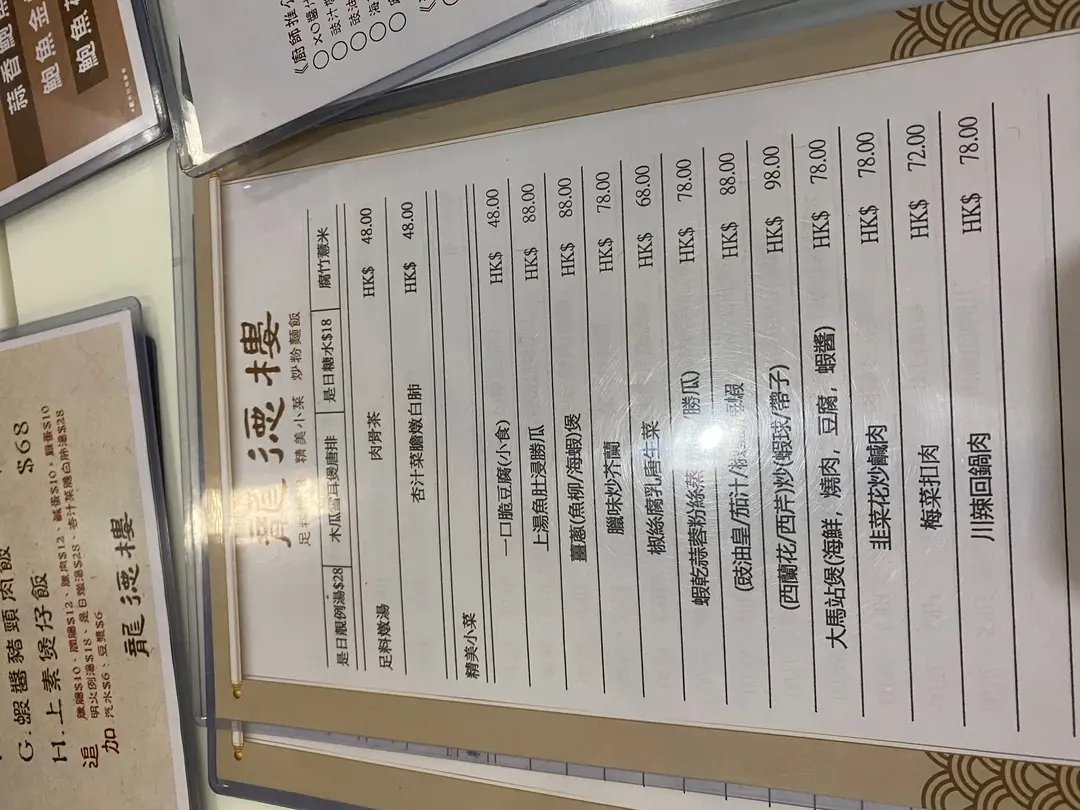 龍德樓
精美小菜 炒粉麵飯
是日靚例湯$28 木瓜雪耳煲唐排 是日糖水$18 腐竹薏米
足料燉湯
肉骨茶 HK$ 48.00
杏汁菜膽燉白肺 HK$ 48.00
精美小菜
一口脆豆腐(小食) HK$ 48.00
上湯魚肚浸勝瓜 HK$ 88.00
薑蔥(魚柳/海蝦)煲 HK$ 88.00
臘味炒芥蘭 HK$ 78.00
椒絲腐乳唐生菜 HK$ 68.00
蝦乾蒜蓉粉絲蒸 勝瓜) HK$ 78.00
(豉油皇/茄汁/椒 蝦 HK$ 88.00
(西蘭花/西芹)炒(蝦球/帶子) HK$ 98.00
大馬站煲(海鮮，燒肉，豆腐，蝦醬) HK$ 78.00
韭菜花炒鹹肉 HK$ 78.00
梅菜扣肉 HK$ 72.00
川辣回鍋肉 HK$ 78.00
G.蝦醬豬頸肉飯 $68
H.上素煲仔飯
追加
明火例湯$18、是日燉湯$28、杏汁菜膽白肺湯$28
汽水$6、豆漿$6
龍德樓
蒜香鮑魚
鮑魚金
鮑魚
《廚師推介
XO醬
豉汁
豉油